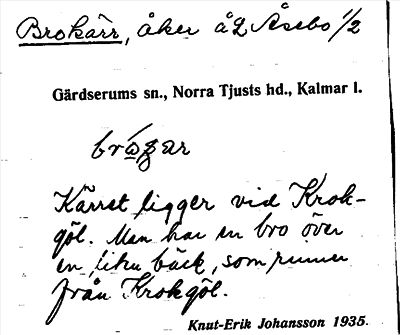 Brokärr, åker å Åsebo 1/2
Gärdserums sn., Norra Tjusts hd., Kalmar l.
Kärret ligger vid Krok-
göl. Man har en bro över
en liten bäck, som rinner
från Krokgöl.
Knut-Erik Johansson 1935.